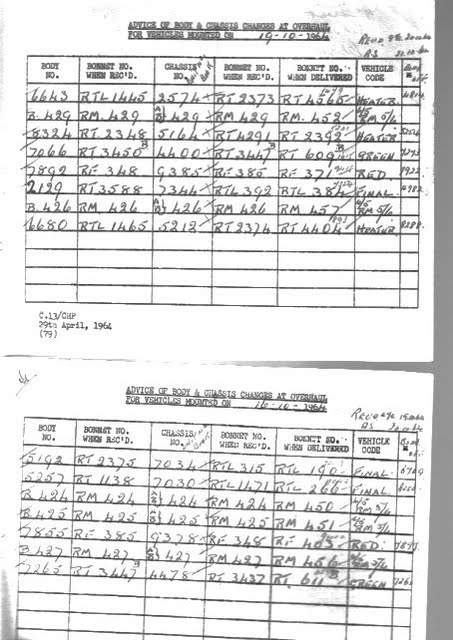 ADVICE OF BODY & CHASSIS CHANGES AT OVERHAUL
FOR VEHICLES MOUNTED ON 19-10-1964
BODY NO. BONNET NO. WHEN REC'D. CHASSIS NO. BONNET NO. WHEN REC'D. BONNET NO. WHEN DELIVERED VEHICLE CODE
6643 RTL 1445 2574 RT 2373 RT 4565 HEATER
B.429 RM. 429 A/B 429 RM 429 RM. 452 RM 5/6
8324 RT 2348 5164 RT 4291 RT 2392 HEATER
7066 RT 3450 B 4400 RT 3447 B RT 609 GREEN
7892 RF 348 9385 RF 385 RF 371 RED
2129 RT 3588 7344 RTL 392 RTL 384 FINAL
B.426 RM. 426 A/B 426 RM 426 RM 457 RM 5/6
6680 RTL 1465 5212 RT 2374 RT 4404 HEATER 8288
C.13/CHP
29th April, 1964
(79)
ADVICE OF BODY & CHASSIS CHANGES AT OVERHAUL
FOR VEHICLES MOUNTED ON 16-10-1964
BODY NO. BONNET NO. WHEN REC'D. CHASSIS NO. BONNET NO. WHEN REC'D. BONNET NO. WHEN DELIVERED VEHICLE CODE
5192 RT 2375 7034 RTL 315 RTL 190 FINAL
5257 RT 1138 7030 RTL 1471 RTL 266 FINAL
B.424 RM 424 A/B 424 RM 424 RM 450 RM 5/6
B.425 RM 425 A/B 425 RM 425 RM 451 RM 5/6
7855 RF 385 9378 RF 348 RF 403 RED
B.427 RM 427 A/B 427 RM 427 RM 456 RM 5/6
7265 RT 3447 B 4478 RT 3437 RT 611 GREEN